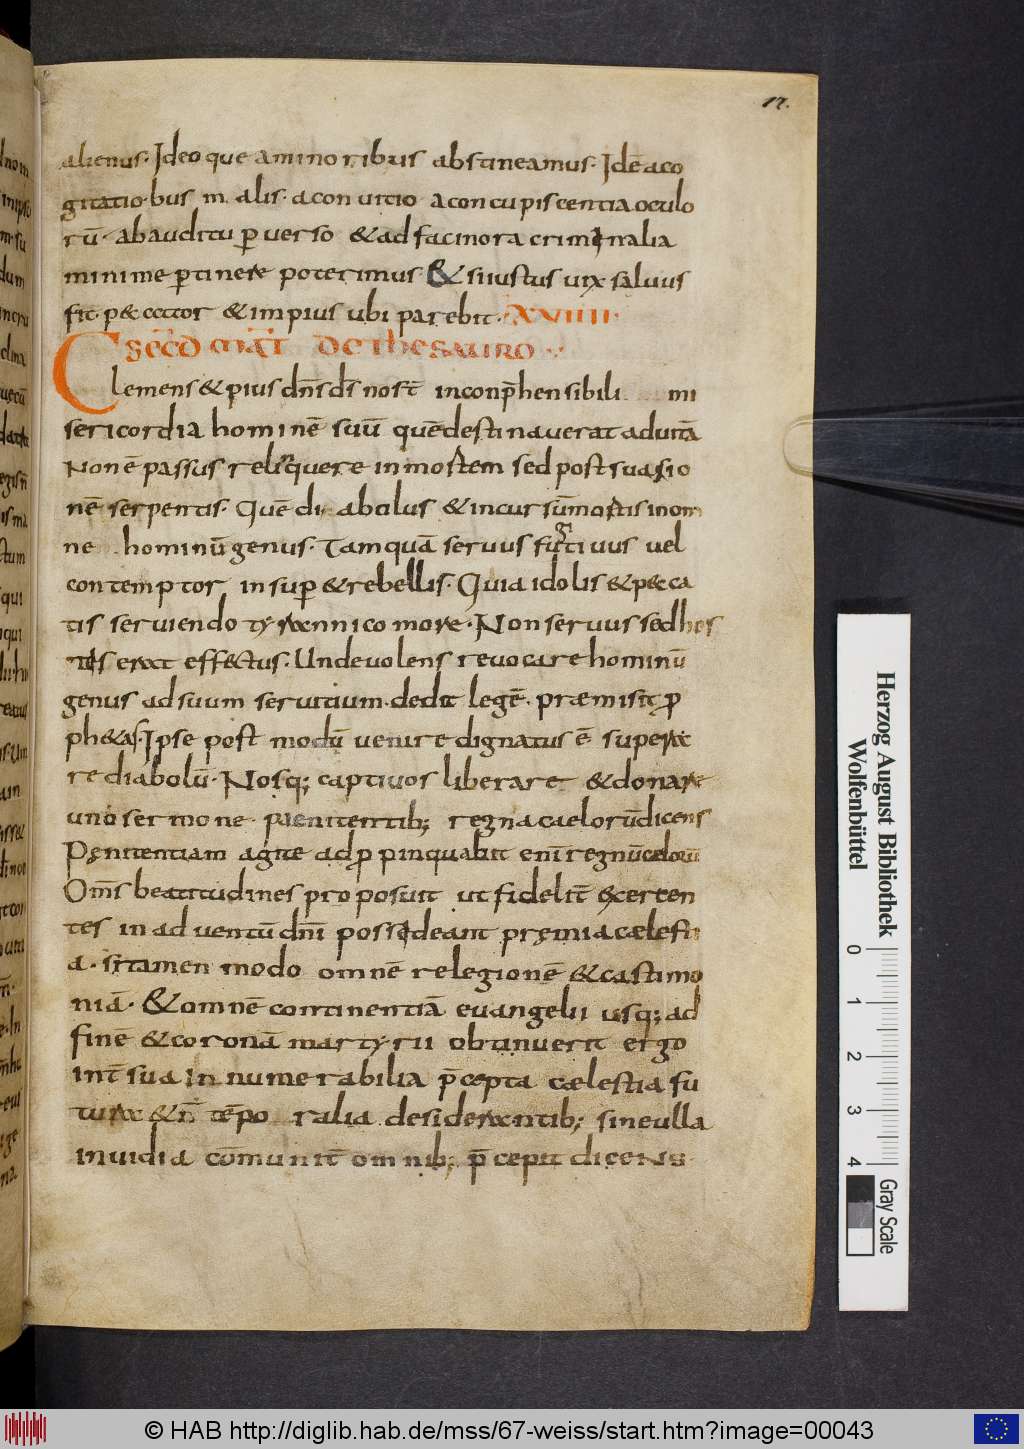 17.
alienus· Ideoque aminoribus abstineamus· Idē aco
gitatio·bus malis· aconuitio aconcupiscentia oculo
rū· abauditu ꝑuerso & ad facinora criminalia
minime ꝑtinere poterimus· & siiustus uix saluus
fit· p&cctor & impius ubi parebit· XVIIII·
SECD MAT DE THESAURO
Clemens & pius dn̄s dr̄ nost̄ inconp̄hensibili mi
sericordia hominē suū quē destinauerat aduitā
Non ē passus relinquere in mortem sed post suasio
nē serpentis· Quē diabolus & incursū mortis in om
ne hominū genus· Tam quā seruus furtiuus uel
contemptor insuꝑ & rebellis· Quia idolis & p&cca
tis seruiendo tyrannico more· Non seruus sed hos
tis erat effectus· Unde uolens reuocare hominū
genus ad suum seruitium· dedit legē· præmisit ꝓ
ph&as· Ipse post modū uenire dignatus ē supera
re diabolū· Nosq; captiuos liberare & donare
uno sermone· paenitentib; regna caelorū dicens
Pęnitentiam agite adꝓpinquabit enī regnū celorū
Om̄s beatitudines proposuit ut fidelit̄ & certen
tes in aduentū dn̄i possideant pręmia cælesti
a· si tamen modo omnē relegionē & castimo
niā· & omnē continentiā euangelii usq; ad
finē & coronā martyrii obtinuerit ergo
int̄ sua innumerabilia p̄cepta cælestia fu
tura & n̄ tēporalia desiderantib; sine ulla
inuidia cōmunit̄ omnib; p̄cepit dicens·
Herzog August Bibliothek
Wolfenbüttel
0 1 2 3 4
Gray Scale
© HAB http://diglib.hab.de/mss/67-weiss/start.htm?image=00043